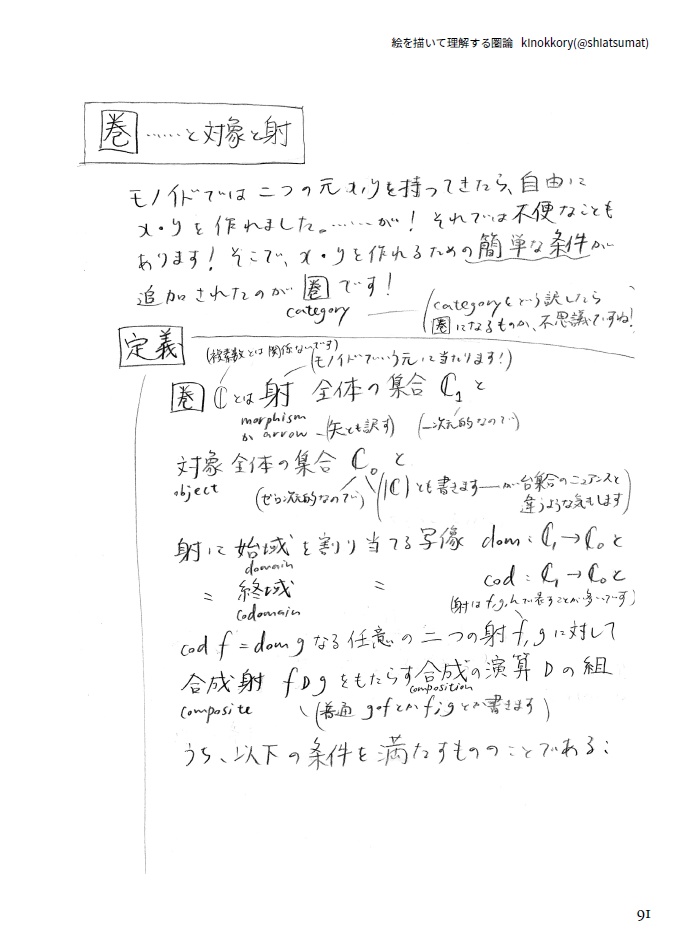 絵を描いて理解する圏論 kinokkory(@shiatsumat)
圏……と対象と射
モノイドでは二つの元x,yを持ってきたら、自由に
x・yを作れました。……が！それでは不便なことも
あります！そこで、x・yを作れるための簡単な条件が
追加されたのが圏です！
category
(categoryをどう訳したら
圏になるものか、不思議ですね!)
定義
(複素数とは関係ないです)
(モノイドでいう元に当たります!)
圏 ℂとは射 全体の集合 ℂ₁と
morphism
か arrow (矢とも訳す) (一次元的なので)
対象全体の集合 ℂ₀と
object (ぜろ次元的なので) (|ℂ|とも書きます――が台集合のニュアンスと
違うような気もします)
射に始域を割り当てる写像 dom : ℂ₁→ℂ₀と
domain
〃 終域 〃 cod : ℂ₁→ℂ₀と
codomain (射はf,g,hで表すことが多いです)
cod f = dom g なる任意の二つの射f,gに対して
合成射 f D g をもたらす合成の演算 D の組
composite composition
(普通 g∘fとかf;gとか書きます)
うち、以下の条件を満たすもののことである:
91